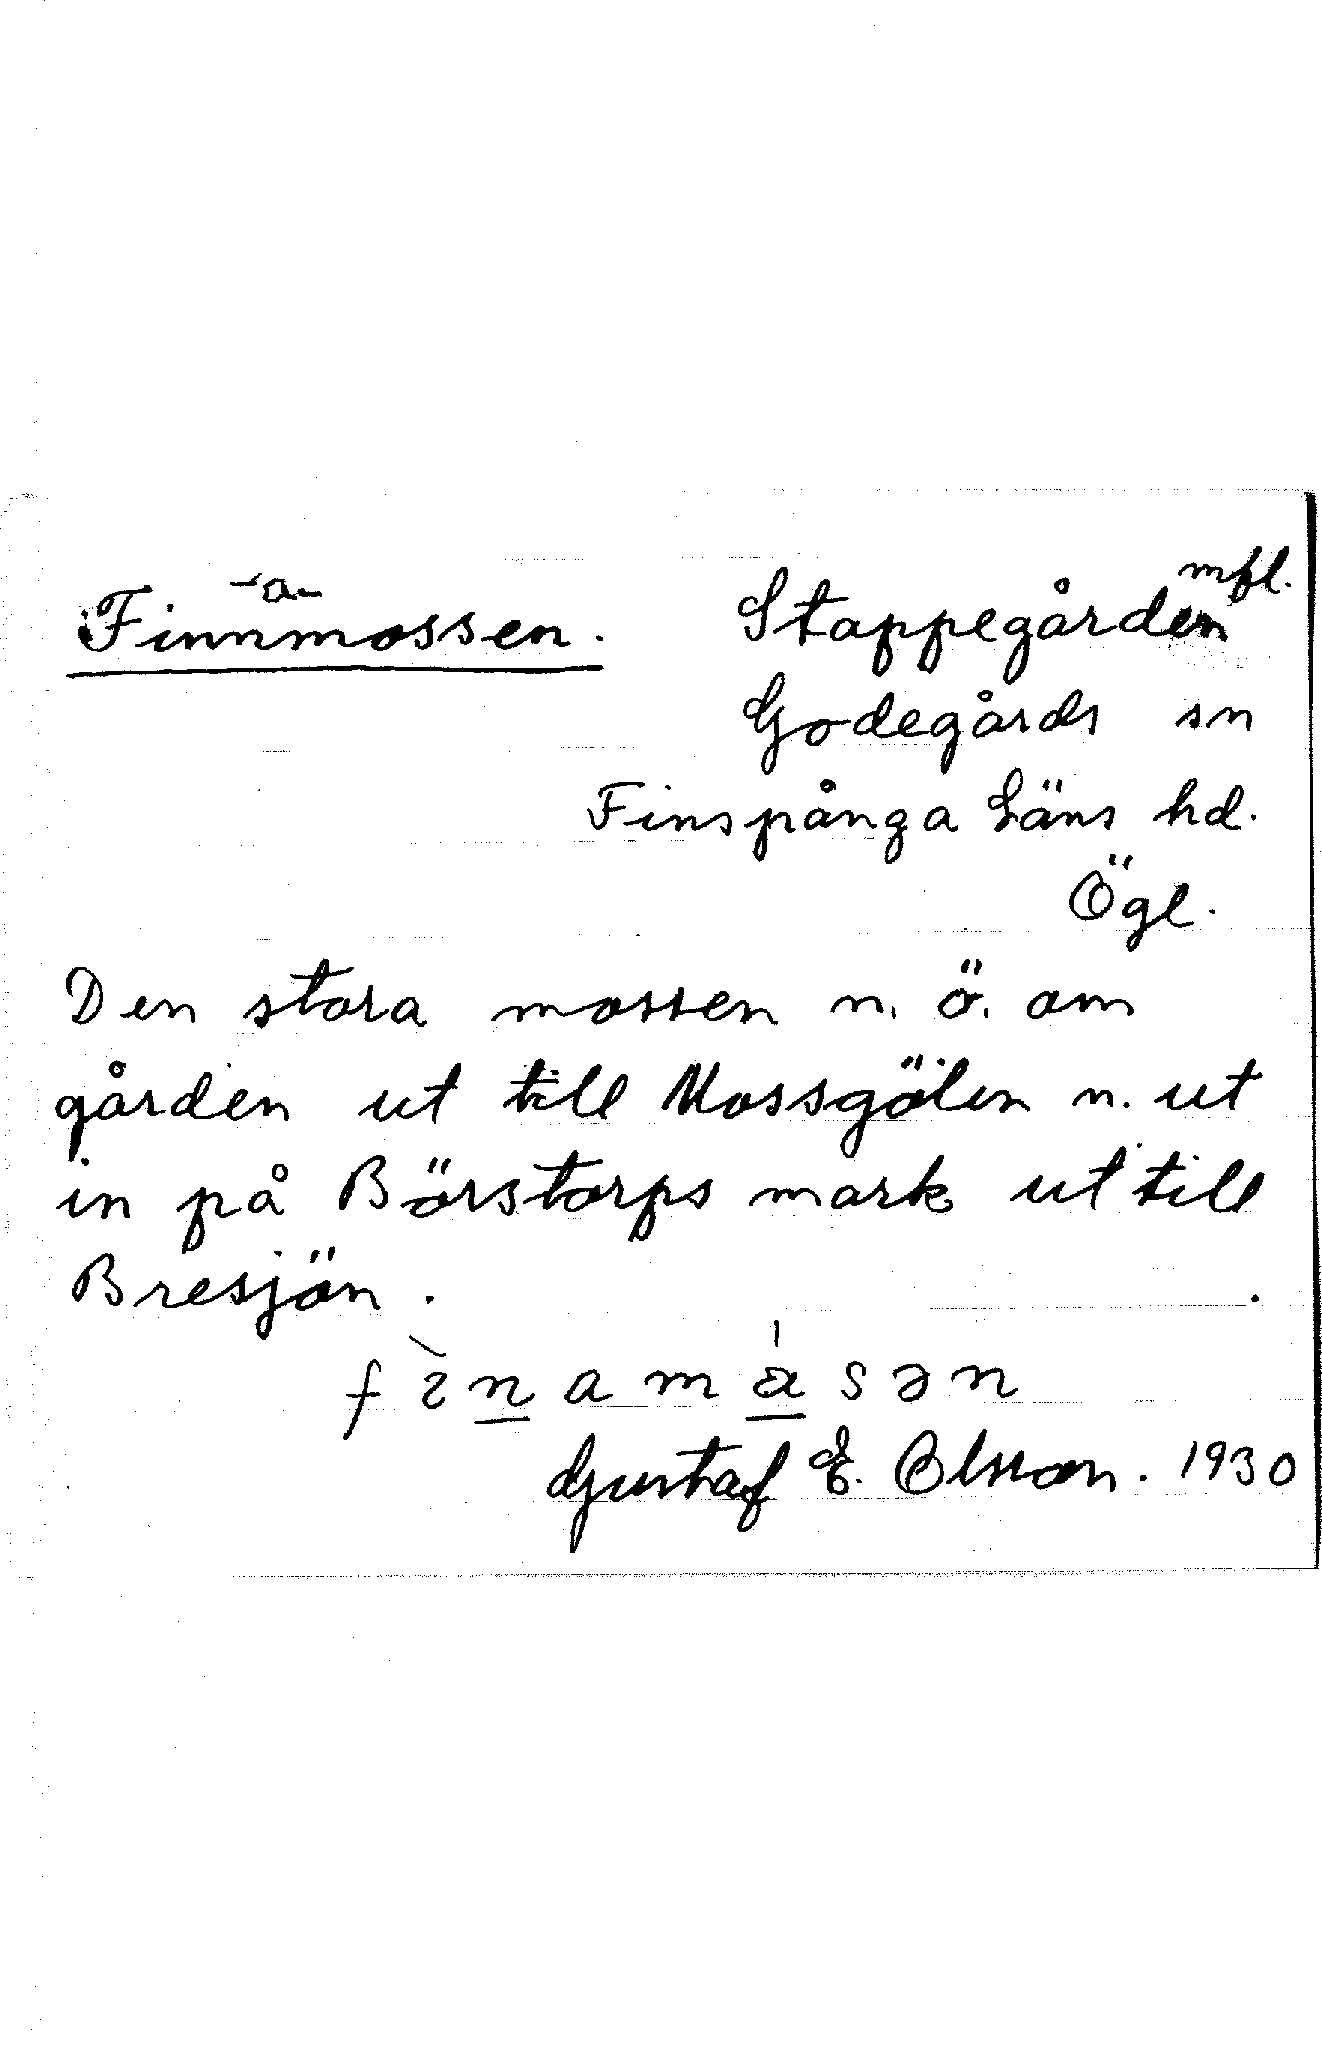 -a-
Finnmossen. Stappegården mfl.
Godegårds sn
Finspånga Läns hd.
Ögl.
Den stora mossen n. ö. om
gården ut till Mossgölen n. ut
in på Börstorps mark ut till
Bresjön.
fìnamåsən
Gustaf E. Olsson. 1930